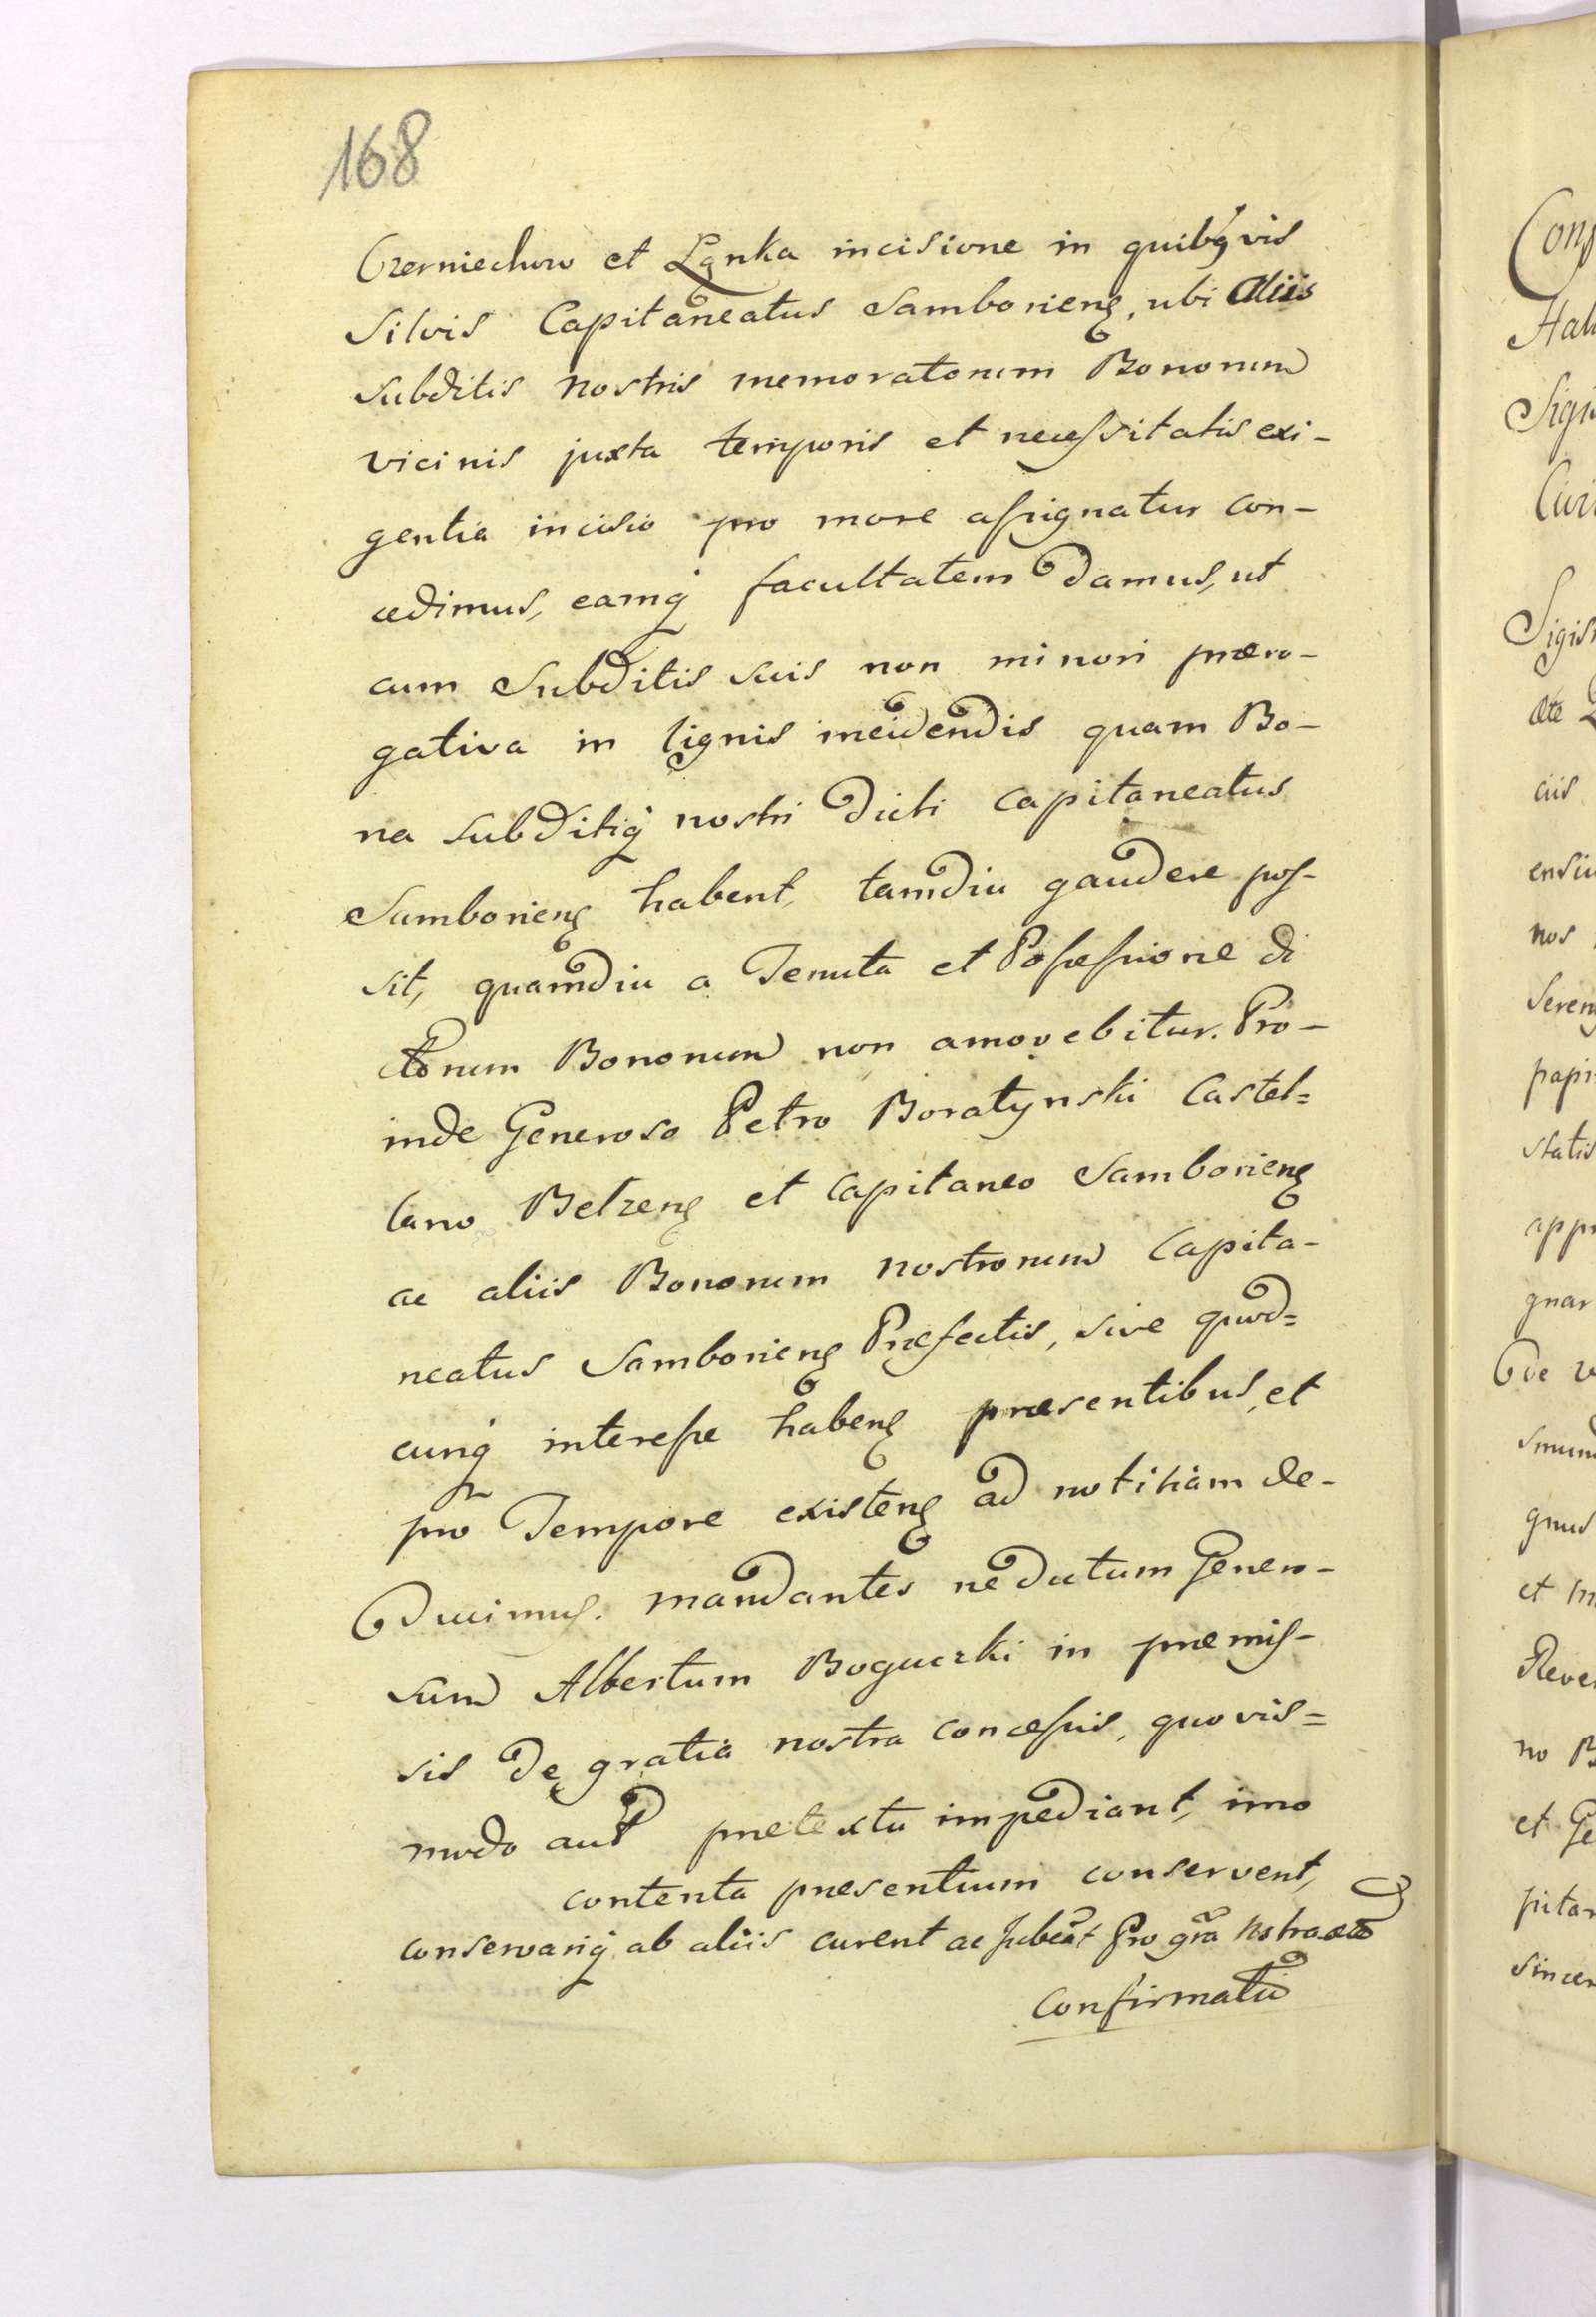 168
Czerniechow et Ląnka incisione in quibq vis
Silvis Capitaneatus Samborieng, ubi aliis
subditis nostris memoratorum Bonorum
vicinis juxta temporis et necessitatis exi-
gentia incisio pro more assignatur con-
cedimus, eamq facultatem damus, ut
cum Subditis suis non minori præro-
gativa in lignis incidendis quam Bo-
na subditiq nostri dicti Capitaneatus
Samborieng habent, tamdiu gaudere pos-
sit, quamdiu a Tenuta et Possessione di
ctorum Bonorum non amovebitur. Pro-
inde Generoso Petro Boratynski Castel=
lano Belzeng et Capitaneo Samborieng
ac aliis Bonorum nostrorum Capita-
neatus Samborieng Præfectis, sive quod=
cunq interesse habeng præsentibus, et
pro Tempore existeng ad notitiam de-
ducimus. mandantes ne dictum Gener-
sum Albertum Boguczki in præmis-
sis de gratia nostra concessis, quovis=
modo aut prætextu impediant, imo
contenta præsentium conservent,
conservariq ab aliis curent ac jubeat Pro gra nostra etc
Confirmatio
Conf
Hali
Sigi
Civi
Sigis
ete
cus
ensiu
nos
Seren
papi
statis
appr
gnar
de v
smun
gnus
et m
Rever
no B
et Ge
pitan
sincer